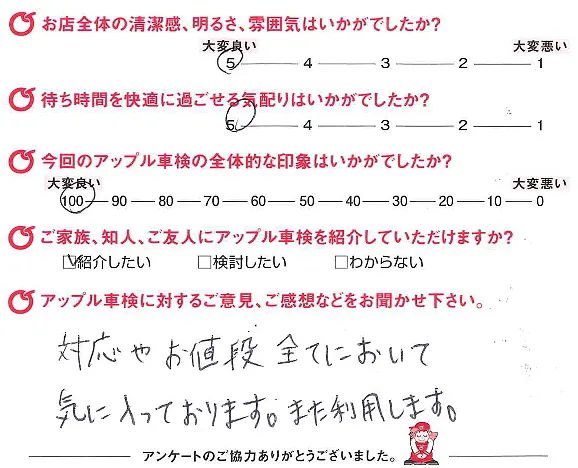 お店全体の清潔感、明るさ、雰囲気はいかがでしたか?
大変良い 大変悪い
5 4 3 2 1
待ち時間を快適に過ごせる気配りはいかがでしたか?
5 4 3 2 1
今回のアップル車検の全体的な印象はいかがでしたか?
大変良い 大変悪い
100 90 80 70 60 50 40 30 20 10 0
ご家族、知人、ご友人にアップル車検を紹介していただけますか?
☑紹介したい □検討したい □わからない
アップル車検に対するご意見、ご感想などをお聞かせ下さい。
対応やお値段全てにおいて
気に入っております。また利用します。
アンケートのご協力ありがとうございました。